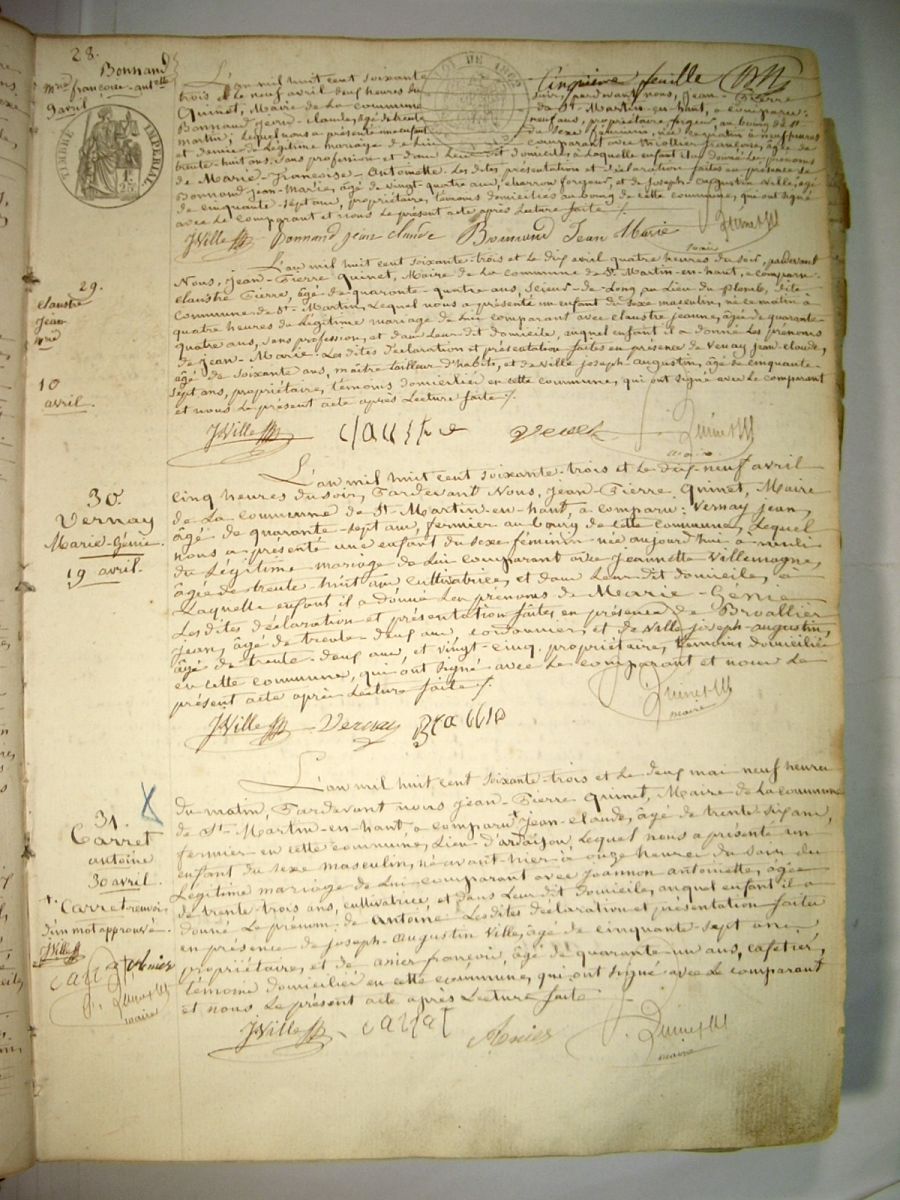 28.
Bonnand
Mie françoise-antette
9 avril
TIMBRE IMPÉRIAL
LOI DE 1862
Cinquième feuille
L'an mil huit cent soixante
trois et le neuf avril deux heures du soir, pardevant nous, Jean-Pierre
Quinet, Maire de la commune de St-Martin-en-haut, a comparu:
Bonnand Jean-Claude, âgé de trente neuf ans, propriétaire forgeur, au bourg de St
Martin, lequel nous a présenté un enfant du sexe féminin, née ce matin à neuf heures
et demie de légitime mariage de lui comparant avec Mcollier françoise, âgée de
trente-huit ans, sans profession, et dans leur dit domicile, à laquelle enfant il a donné les prénoms
de Marie-Françoise-Antoinette. Les dites présentation et déclaration faites en présence de
Bonnand Jean-Marie, âgé de vingt-quatre ans, charron forgeur, et de Joseph-Augustin Ville, âgé
de cinquante-sept ans, propriétaire, témoins domiciliés au bourg de cette commune, qui ont signé
avec le comparant et nous le présent acte après lecture faite /.
JVille Bonnand jean claude Bonnand Jean Marie Quinet
maire
29.
Claustre
Jean
Mie
10
avril
L'an mil huit cent soixante-trois et le dix avril quatre heures du soir, pardevant
Nous, Jean-Pierre Quinet, Maire de la Commune de St-Martin-en-haut, a comparu
Claustre Pierre, âgé de quarante-quatre ans, scieur-de-long au lieu du Plomb, dite
Commune de St-Martin, lequel nous a présenté un enfant du sexe masculin, né ce matin à
quatre heures de légitime mariage de lui comparant avec Claustre jeanne, âgée de quarante-
quatre ans, sans profession, et dans leur dit domicile, auquel enfant il a donné les prénoms
de Jean-Marie. Les dites déclaration et présentation faites en présence de Vernay Jean-Claude,
âgé de soixante ans, maître tailleur d'habits, et de Ville Joseph-Augustin, âgé de cinquante-
sept ans, propriétaire, témoins domiciliés en cette commune, qui ont signé avec le comparant
et nous le présent acte après lecture faite /.
JVille Claustre P. Quinet
maire
30.
Vernay
Marie-Génie
19 avril.
L'an mil huit cent soixante-trois et le dix-neuf avril
cinq heures du soir, Pardevant Nous, Jean-Pierre Quinet, Maire
de la commune de St-Martin-en-haut, a comparu: Vernay Jean,
âgé de quarante-sept ans, fermier au bourg de cette commune, lequel
nous a présenté une enfant du sexe féminin née aujourd'hui à midi
du légitime mariage de lui comparant avec Jeannette Villemagne,
âgée de trente huit ans cultivatrice, et dans leur dit domicile, à
laquelle enfant il a donné les prénoms de Marie-Génie
Lesdites déclaration et présentation faites en présence de Broallier
Jean, âgé de trente-deux ans, cordonnier, et de Ville Joseph-Augustin,
âgé de trente-deux ans, et vingt-cinq, propriétaire, témoins domiciliés
en cette commune, qui ont signé avec le comparant et nous le
présent acte après lecture faite /.
JVille Vernay P. Quinet
maire
31.
Carret
antoine
30 avril.
+. Carret renvoi
d'un mot approuvé.
JVille
Carrat Anier
P. Quinet
maire
L'an mil huit cent soixante-trois et le deux mai neuf heures
du matin, Pardevant nous Jean-Pierre Quinet, Maire de la commune
de St-Martin-en-haut, a comparu + Jean-Claude, âgé de trente-six ans,
fermier en cette commune, lieu d'ardaijon, lequel nous a présenté un
enfant du sexe masculin, né avant-hier à onze heures du soir du
légitime mariage de lui comparant avec Joannon antoinette, âgée
de trente-trois ans, cultivatrice, et dans leur dit domicile, auquel enfant il a
donné le prénom: de Antoine. Lesdites déclaration et présentation faites
en présence de Joseph-Augustin Ville, âgé de cinquante-sept ans,
propriétaire, et de anier françois, âgé de quarante-un ans, cafetier,
témoins domiciliés en cette commune, qui ont signé avec le comparant
et nous le présent acte après lecture faite.
JVille Carrat Anier P. Quinet
maire